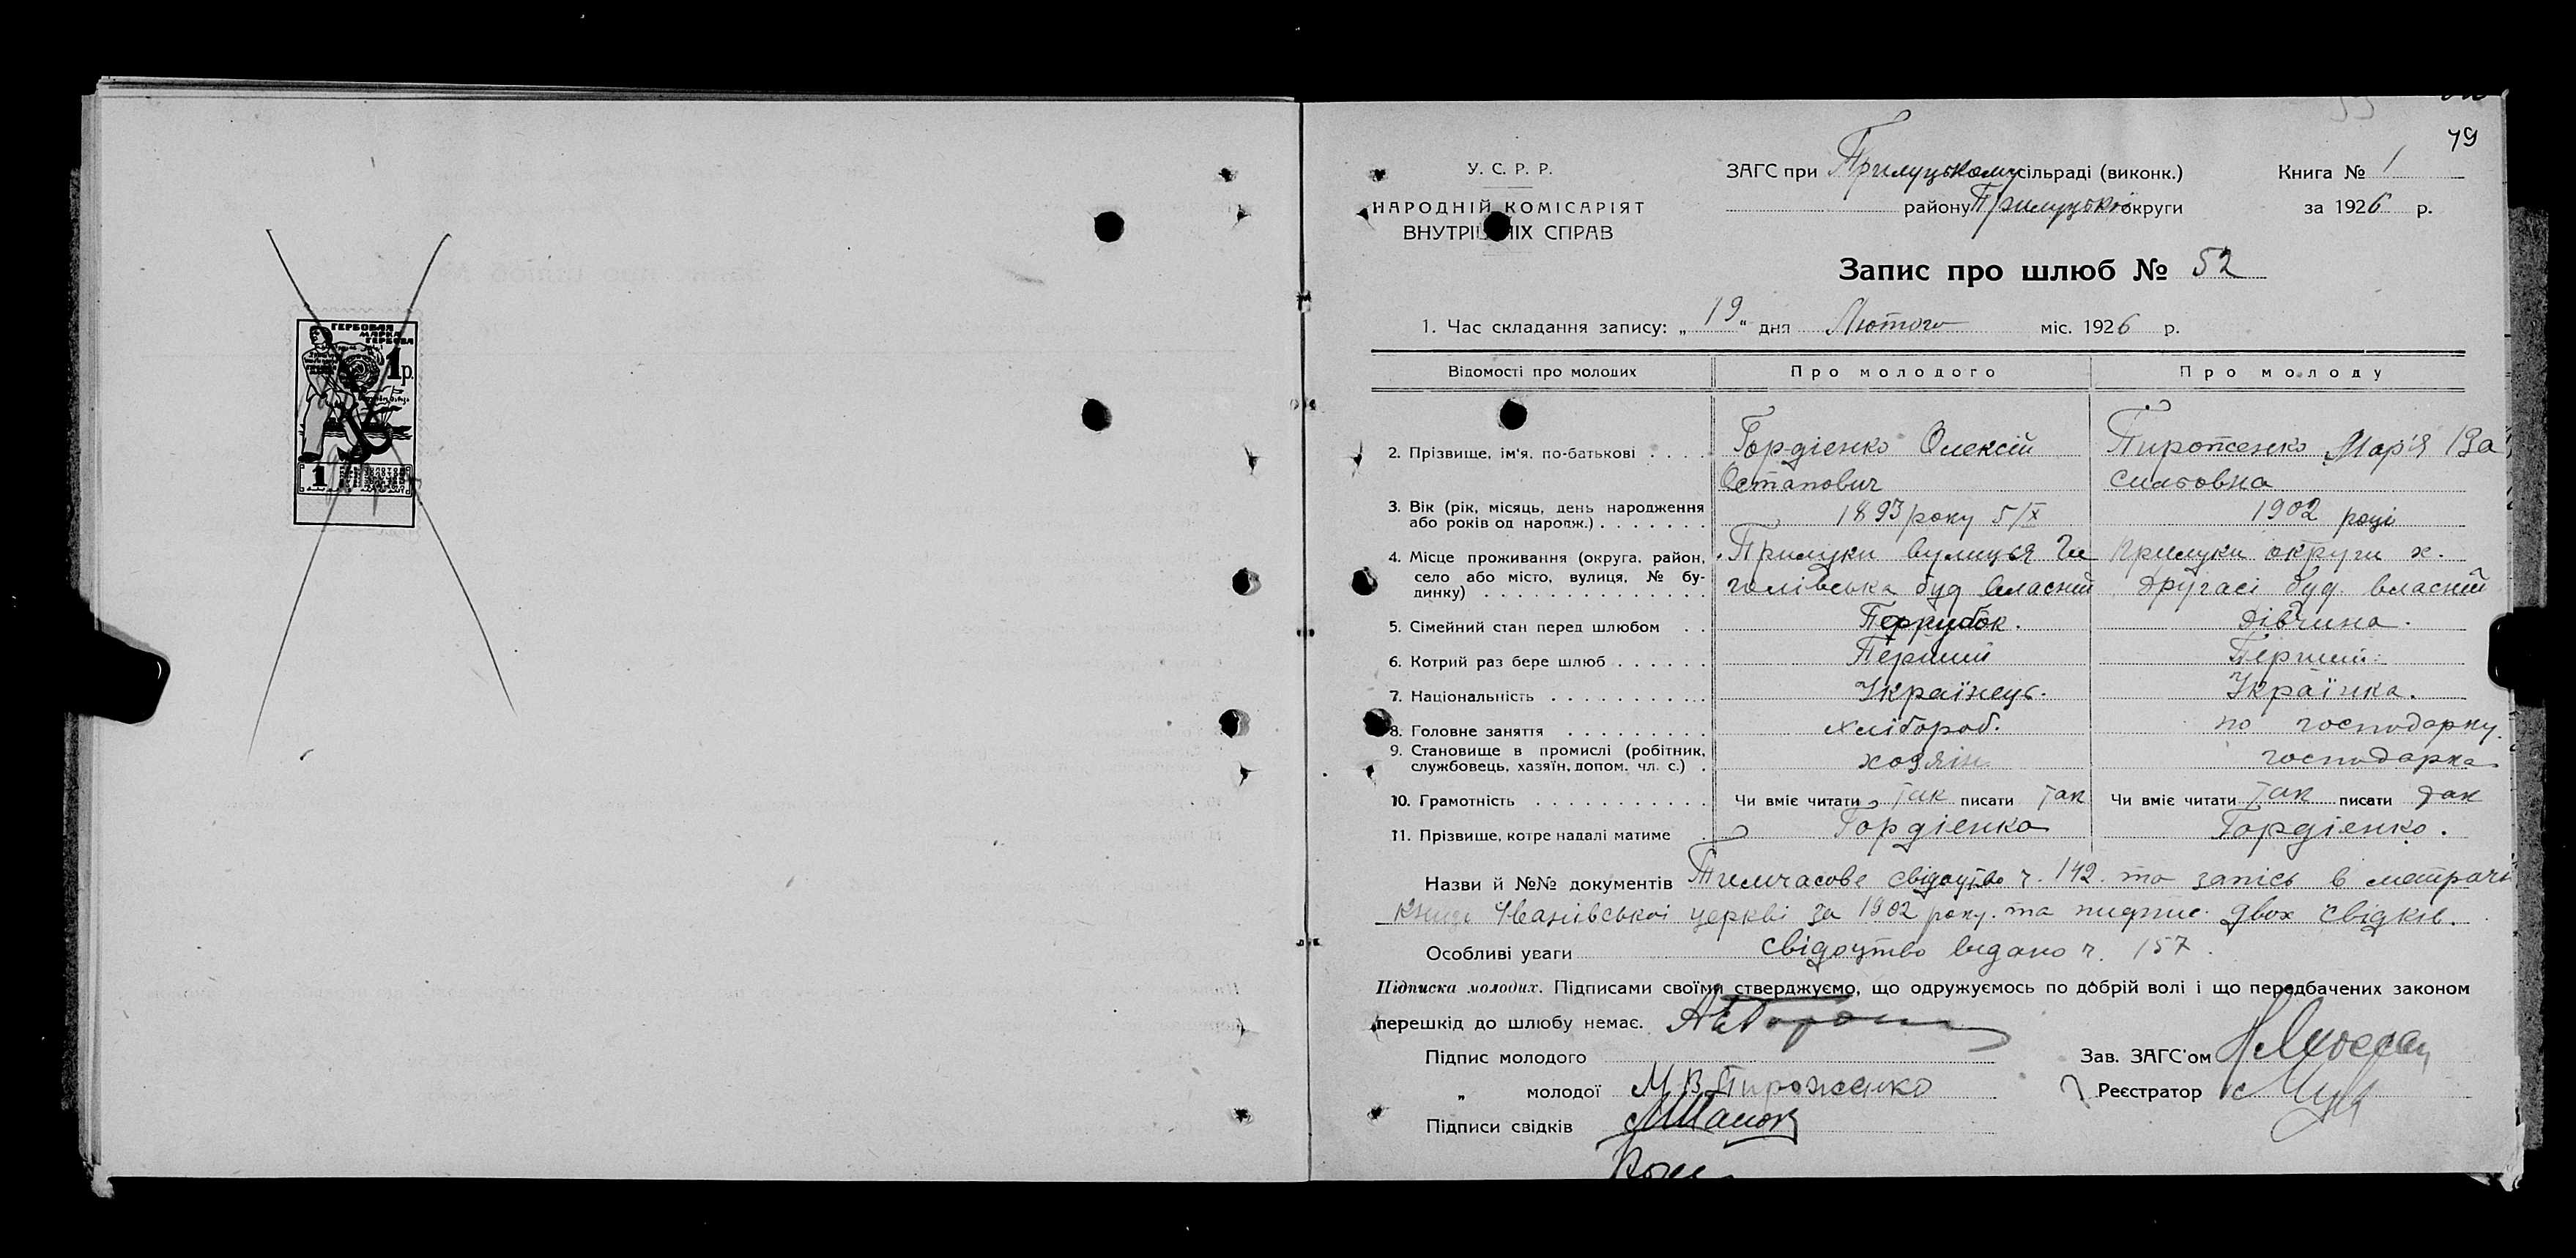 ГЕРБОВАЯ
МАРКА
ГЕРБОВА
1 р.
1
79
У. С. Р. Р.
НАРОДНІЙ КОМІСАРІЯТ
ВНУТРІШНІХ СПРАВ
ЗАГС при Прилуцькому сільраді (виконк.)
району Прилуцької округи
Книга № 1
за 1926 р.
Запис про шлюб № 52
1. Час складання запису: „19" дня Лютого міс. 1926 р.
Відомості про молодих Про молодого Про молоду
2. Прізвище, ім'я, по-батькові Гордієнко Олексій Остапович Пироженко Мар'я Васильовна
3. Вік (рік, місяць, день народження або років од народж.) 1893 року 5/X 1902 році
4. Місце проживання (округа, район, село або місто, вулиця, № будинку) Прилуки вулиця буд власний Прилуки округи х. буд. власний
5. Сімейний стан перед шлюбом Парубок. дівчина.
6. Котрий раз бере шлюб Перший Перший
7. Національність Українець. Українка.
8. Головне заняття хлібороб. по господарку.
9. Становище в промислі (робітник, службовець, хазяїн, допом. чл. с.) хозяїн господарка
10. Грамотність Чи вміє читати так писати так Чи вміє читати так писати так
11. Прізвище, котре надалі матиме Гордієнко Гордієнко.
Назви й №№ документів Тимчасове свідоцтво ч. 142. та запісь в метрачні
книзі Іванівської церкві за 1902 року. та пидпис двох свідків.
Особливі уваги свідоцтво видано ч. 157.
Підписка молодих. Підписами своїми стверджуємо, що одружуємось по добрій волі і що передбачених законом
перешкід до шлюбу немає.
Підпис молодого
Зав. ЗАГС'ом
„ молодої М В Пироженко
Реєстратор
Підписи свідків